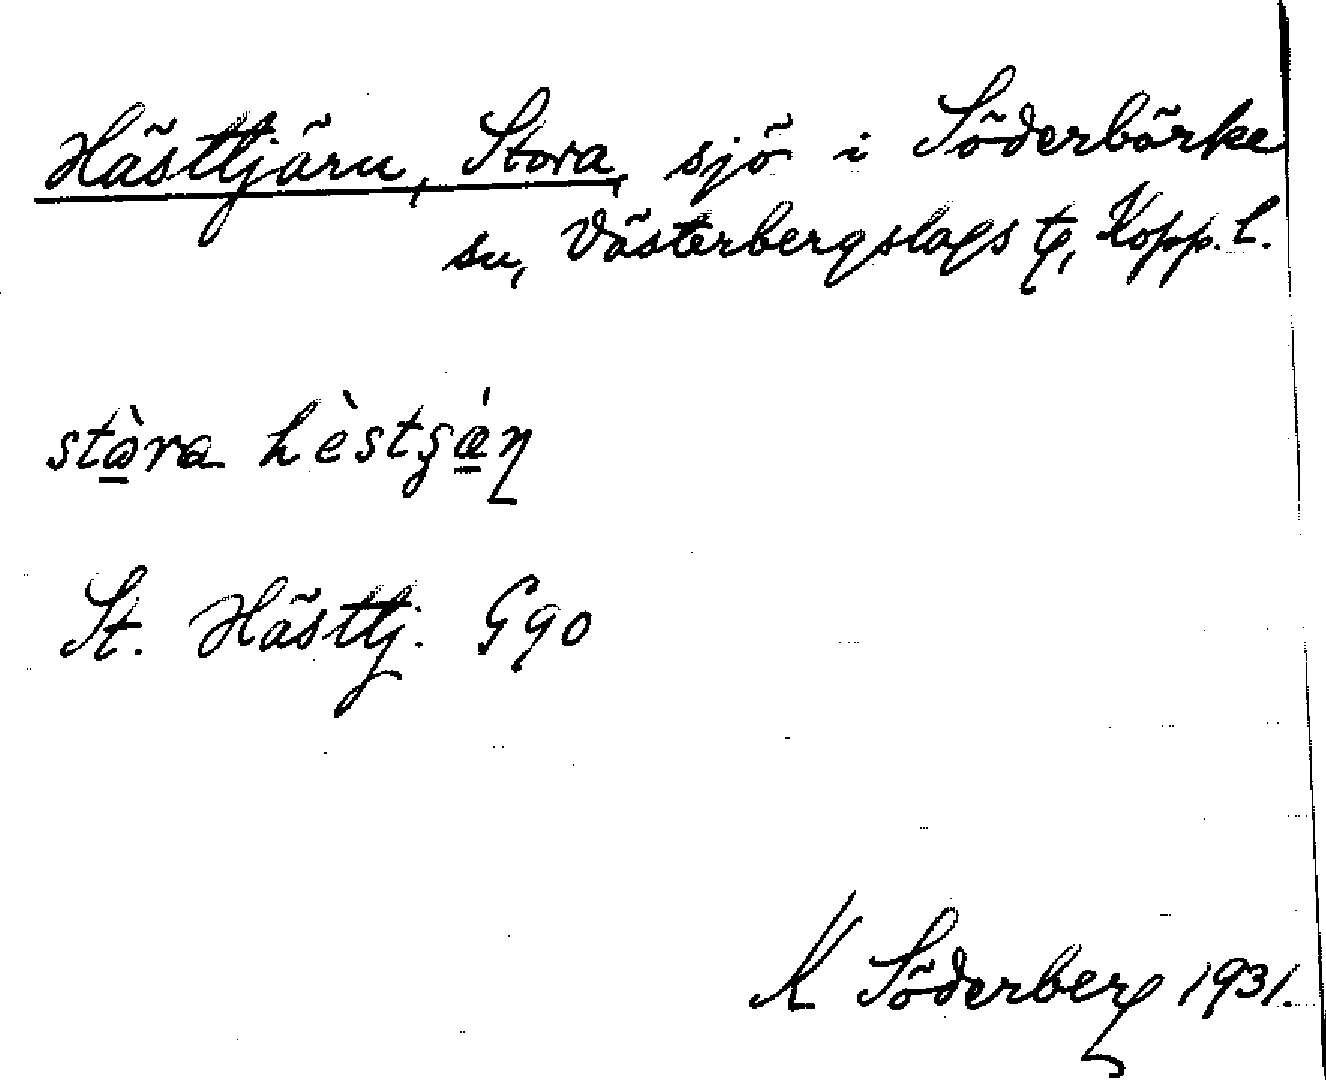 Hästtjärn, Stora, sjö i Söderbärke
sn, Västerbergslags tg, Kopp. l.
stòra hèstʂǽɳ
St. Hästtj. G90
K Söderberg 1931.